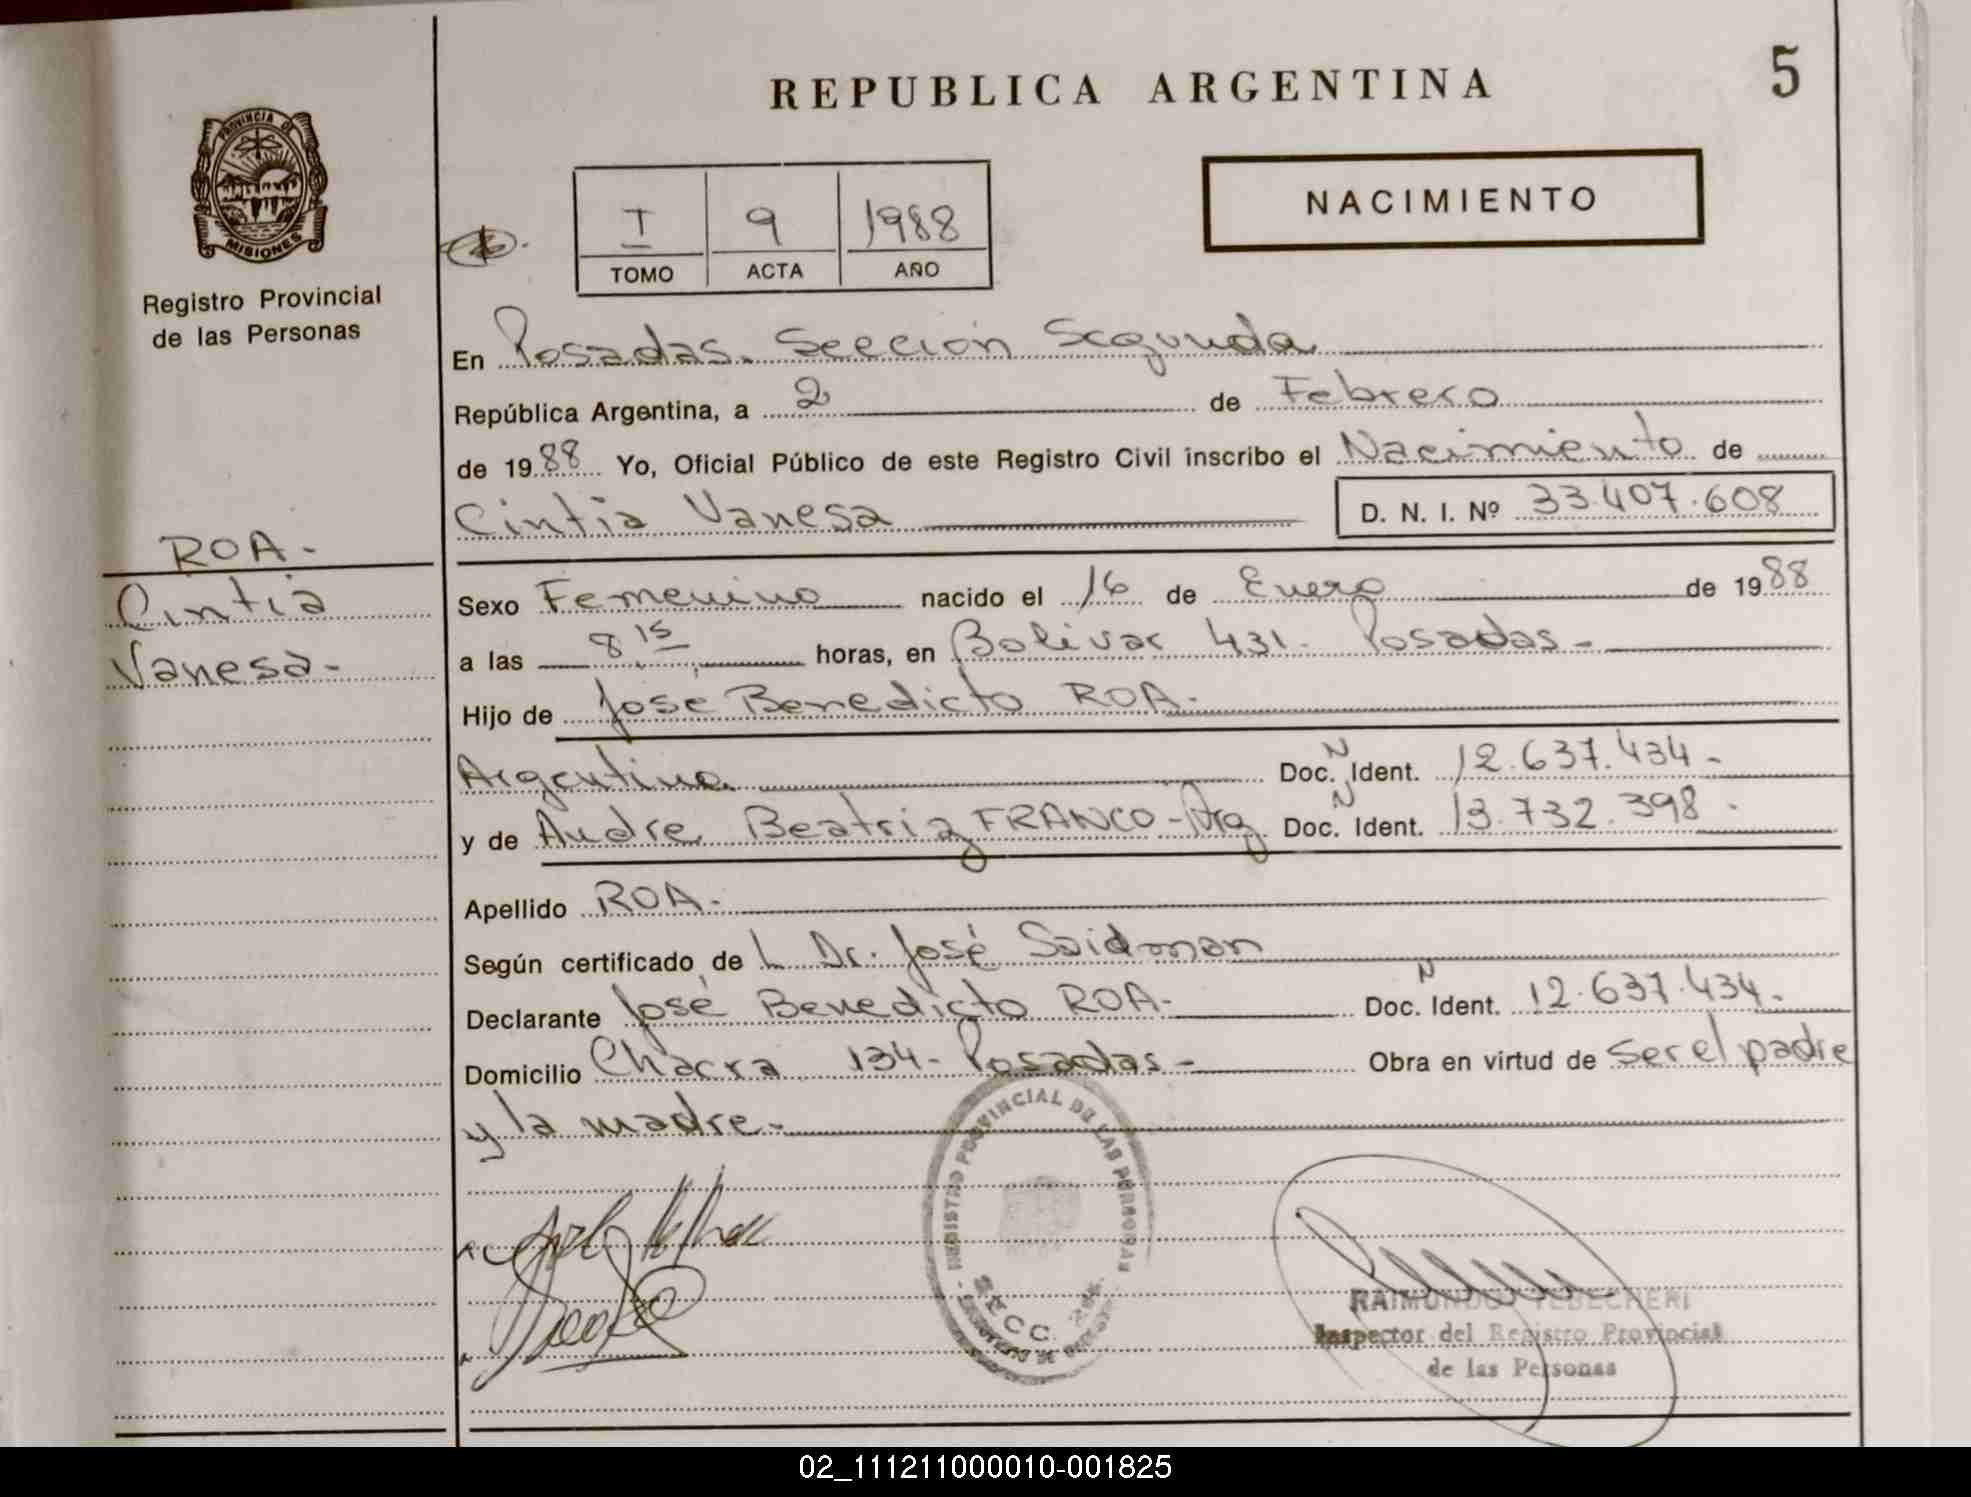 REPUBLICA ARGENTINA
5
PROVINCIA DE
MISIONES
Registro Provincial
de las Personas
I 9 1988
TOMO ACTA AÑO
NACIMIENTO
En Posadas. Sección Segunda
República Argentina, a 2 de Febrero
de 1988 Yo, Oficial Público de este Registro Civil inscribo el Nacimiento de
Cintia Vanesa D. N. I. Nº 33.407.608
ROA-
Cintia
Vanesa-
Sexo Femenino nacido el 16 de Enero de 1988
a las 8 15 horas, en Bolivar 431- Posadas-
Hijo de José Benedicto ROA-
Argentina Doc. N Ident. 12.637.434-
y de Andre Beatriz FRANCO-Arg Doc. N Ident. 13.732.398-
Apellido ROA-
Según certificado de L Dr. José Saidman
Declarante José Benedicto ROA- Doc. N Ident. 12.637.434-
Domicilio Chacra 134- Posadas- Obra en virtud de ser el padre
y la madre-
REGISTRO PROVINCIAL DE LAS PERSONAS
SECC. 2da.
RAIMUNDO YEBECHERI
Inspector del Registro Provincial
de las Personas
02_111211000010-001825